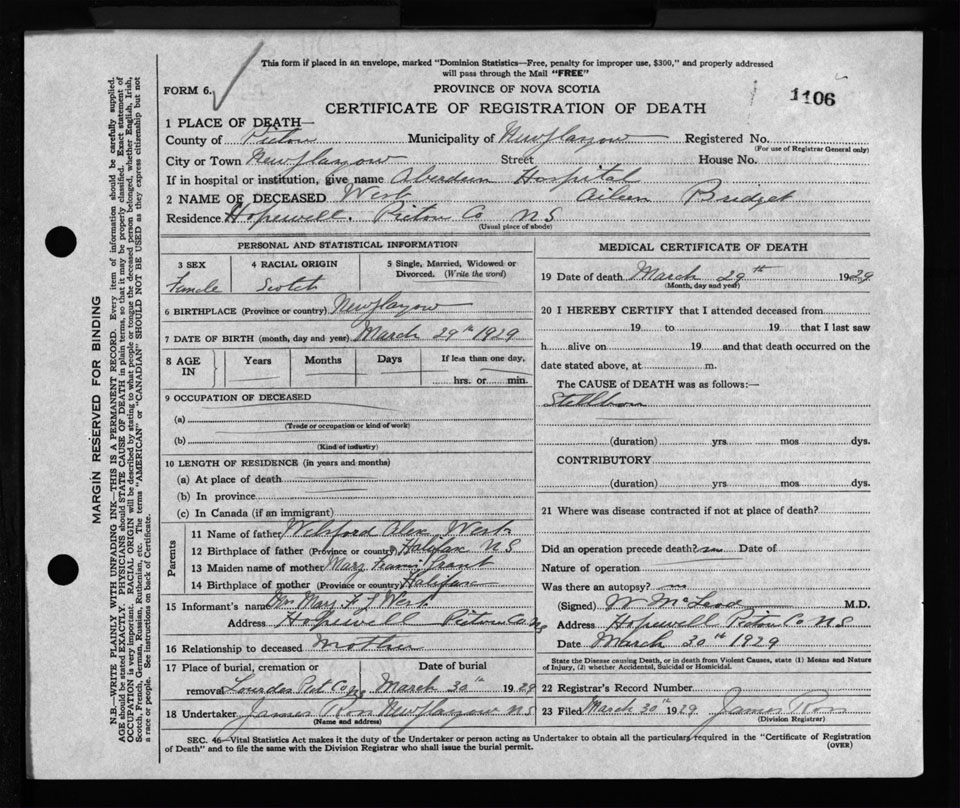 This form if placed in an envelope, marked "Dominion Statistics—Free, penalty for improper use, $300," and properly addressed
will pass through the Mail "FREE"
FORM 6.
PROVINCE OF NOVA SCOTIA
1106
CERTIFICATE OF REGISTRATION OF DEATH
1 PLACE OF DEATH—
County of Pictou Municipality of New Glasgow Registered No.
(For use of Registrar General only)
City or Town New Glasgow Street House No.
If in hospital or institution, give name Aberdeen Hospital
2 NAME OF DECEASED West Aileen Bridget
Residence Hopewell. Pictou Co NS
(Usual place of abode)
PERSONAL AND STATISTICAL INFORMATION
3 SEX 4 RACIAL ORIGIN 5 Single, Married, Widowed or
Divorced. (Write the word)
Female Scotch
6 BIRTHPLACE (Province or country) New Glasgow
7 DATE OF BIRTH (month, day and year) March 29th 1929
8 AGE IN Years Months Days If less than one day,
hrs. or min.
9 OCCUPATION OF DECEASED
(a)
(Trade or occupation or kind of work)
(b)
(Kind of industry)
10 LENGTH OF RESIDENCE (in years and months)
(a) At place of death
(b) In province
(c) In Canada (if an immigrant)
Parents
11 Name of father Welsford Alex West
12 Birthplace of father (Province or country) Halifax NS
13 Maiden name of mother Mary Grant
14 Birthplace of mother (Province or country) Halifax
15 Informant's name Mrs Mary F West
Address Hopewell Pictou Co NS
16 Relationship to deceased Mother
17 Place of burial, cremation or Date of burial
removal Lourdes Pict Co NS March 30th 1929
18 Undertaker James Ross New Glasgow NS
(Name and address)
MEDICAL CERTIFICATE OF DEATH
19 Date of death March 29th 1929
(Month, day and year)
20 I HEREBY CERTIFY that I attended deceased from
19 to 19 that I last saw
h alive on 19 and that death occurred on the
date stated above, at m.
The CAUSE of DEATH was as follows:—
Stillborn
(duration) yrs mos dys.
CONTRIBUTORY
(duration) yrs. mos. dys.
21 Where was disease contracted if not at place of death?
Did an operation precede death? no Date of
Nature of operation
Was there an autopsy? no
(Signed) W McLeod M.D.
Address Hopewell Pictou Co NS
Date March 30th 1929
State the Disease causing Death, or in death from Violent Causes, state (1) Means and Nature
of Injury, (2) whether Accidental, Suicidal or Homicidal.
22 Registrar's Record Number
23 Filed March 30th 1929 James Ross
(Division Registrar)
SEC. 46—Vital Statistics Act makes it the duty of the Undertaker or person acting as Undertaker to obtain all the particulars required in the "Certificate of Registration
of Death" and to file the same with the Division Registrar who shall issue the burial permit.
(OVER)
MARGIN RESERVED FOR BINDING
N.B.—WRITE PLAINLY WITH UNFADING INK—THIS IS A PERMANENT RECORD. Every item of information should be carefully supplied.
AGE should be stated EXACTLY. PHYSICIANS should STATE CAUSE OF DEATH in plain terms, so that it may be properly classified. Exact statement of
OCCUPATION is very important. RACIAL ORIGIN will be described by stating to what people or tongue the deceased person belonged, whether English, Irish,
Scotch, French, German, Russian, Ruthenian, etc. The terms "AMERICAN" or "CANADIAN" SHOULD NOT BE USED as they express citizenship but not
a race or people. See instructions on back of Certificate.